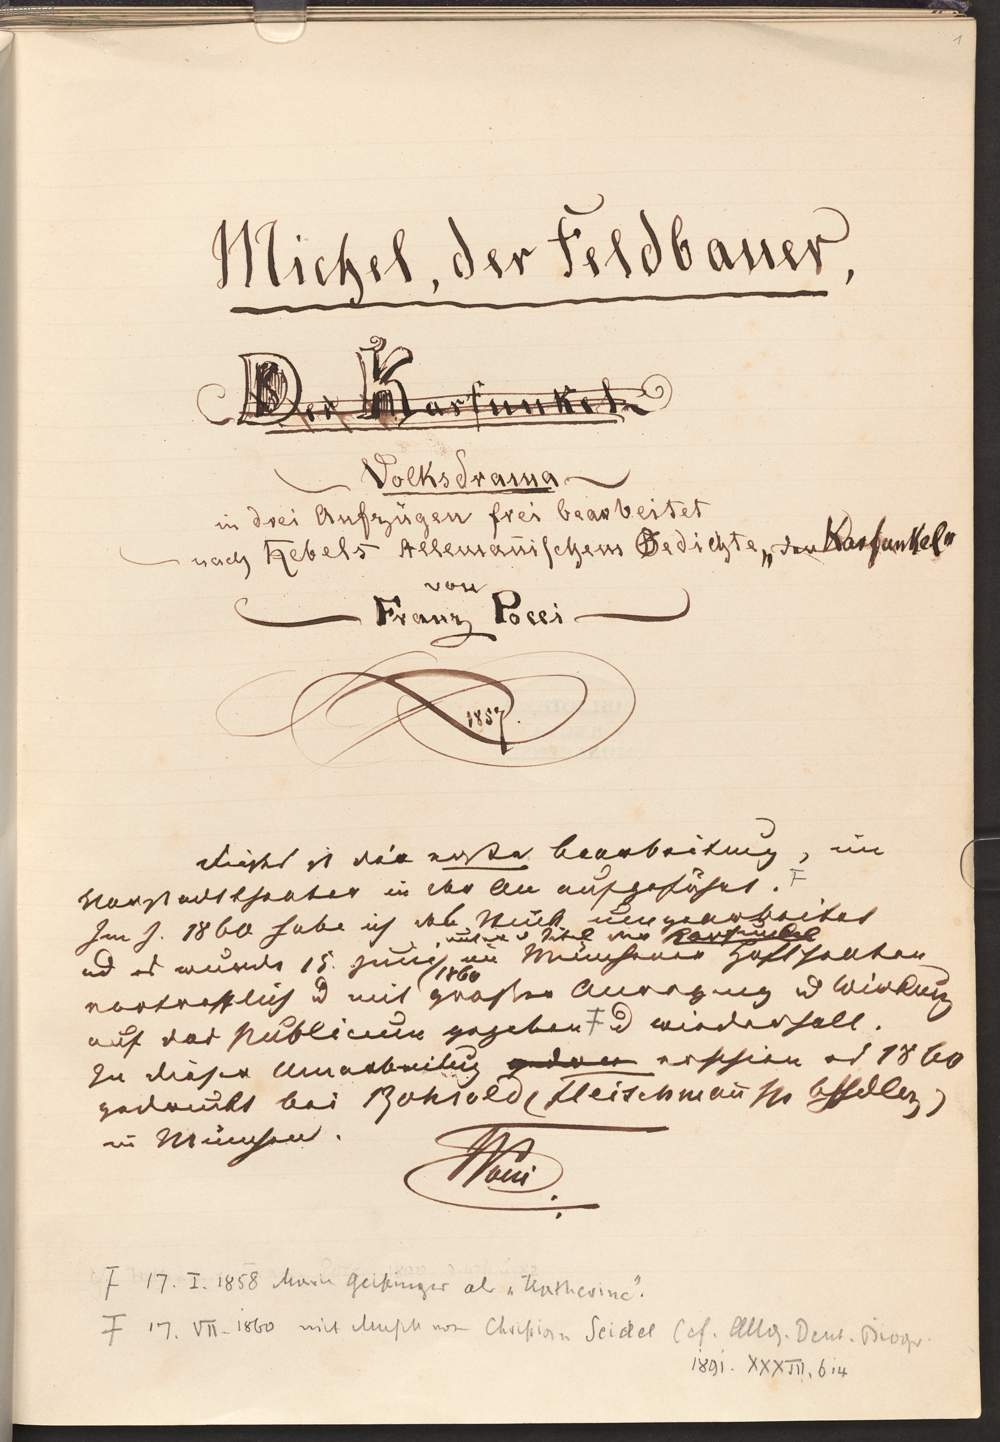 1
Michel, der Feldbauer,
Der Karfunkel
Volksdrama
in drei Aufzügen frei bearbeitet
nach Hebels Allemañischem Gedichte „der Karfunkel“
von
Franz Pocci
1857.
Dieses ist die erste Bearbeitung, im
Vorstadttheater in der Au aufgeführt. F
Im J. 1860 habe ich das Stück umgearbeitet
unter d Titel der Karfunkel
und es wurde 15. Juni im Münchener Hoftheater
1860
vortrefflich u mit großer Anregung u Wirkung
auf das Publicum gegeben F u wiederholt.
In dieser Umarbeitung erschien es 1860
gedruckt bei Rohsold (Fleischmañ
in München.
Pocci
F 17. I. 1858 Marie Geistinger als „Katherine“.
F 17. VII. 1860 mit Musik von Christian Seidel (cf. Allg. Deut. Biogr.
1891. XXXIII, 614